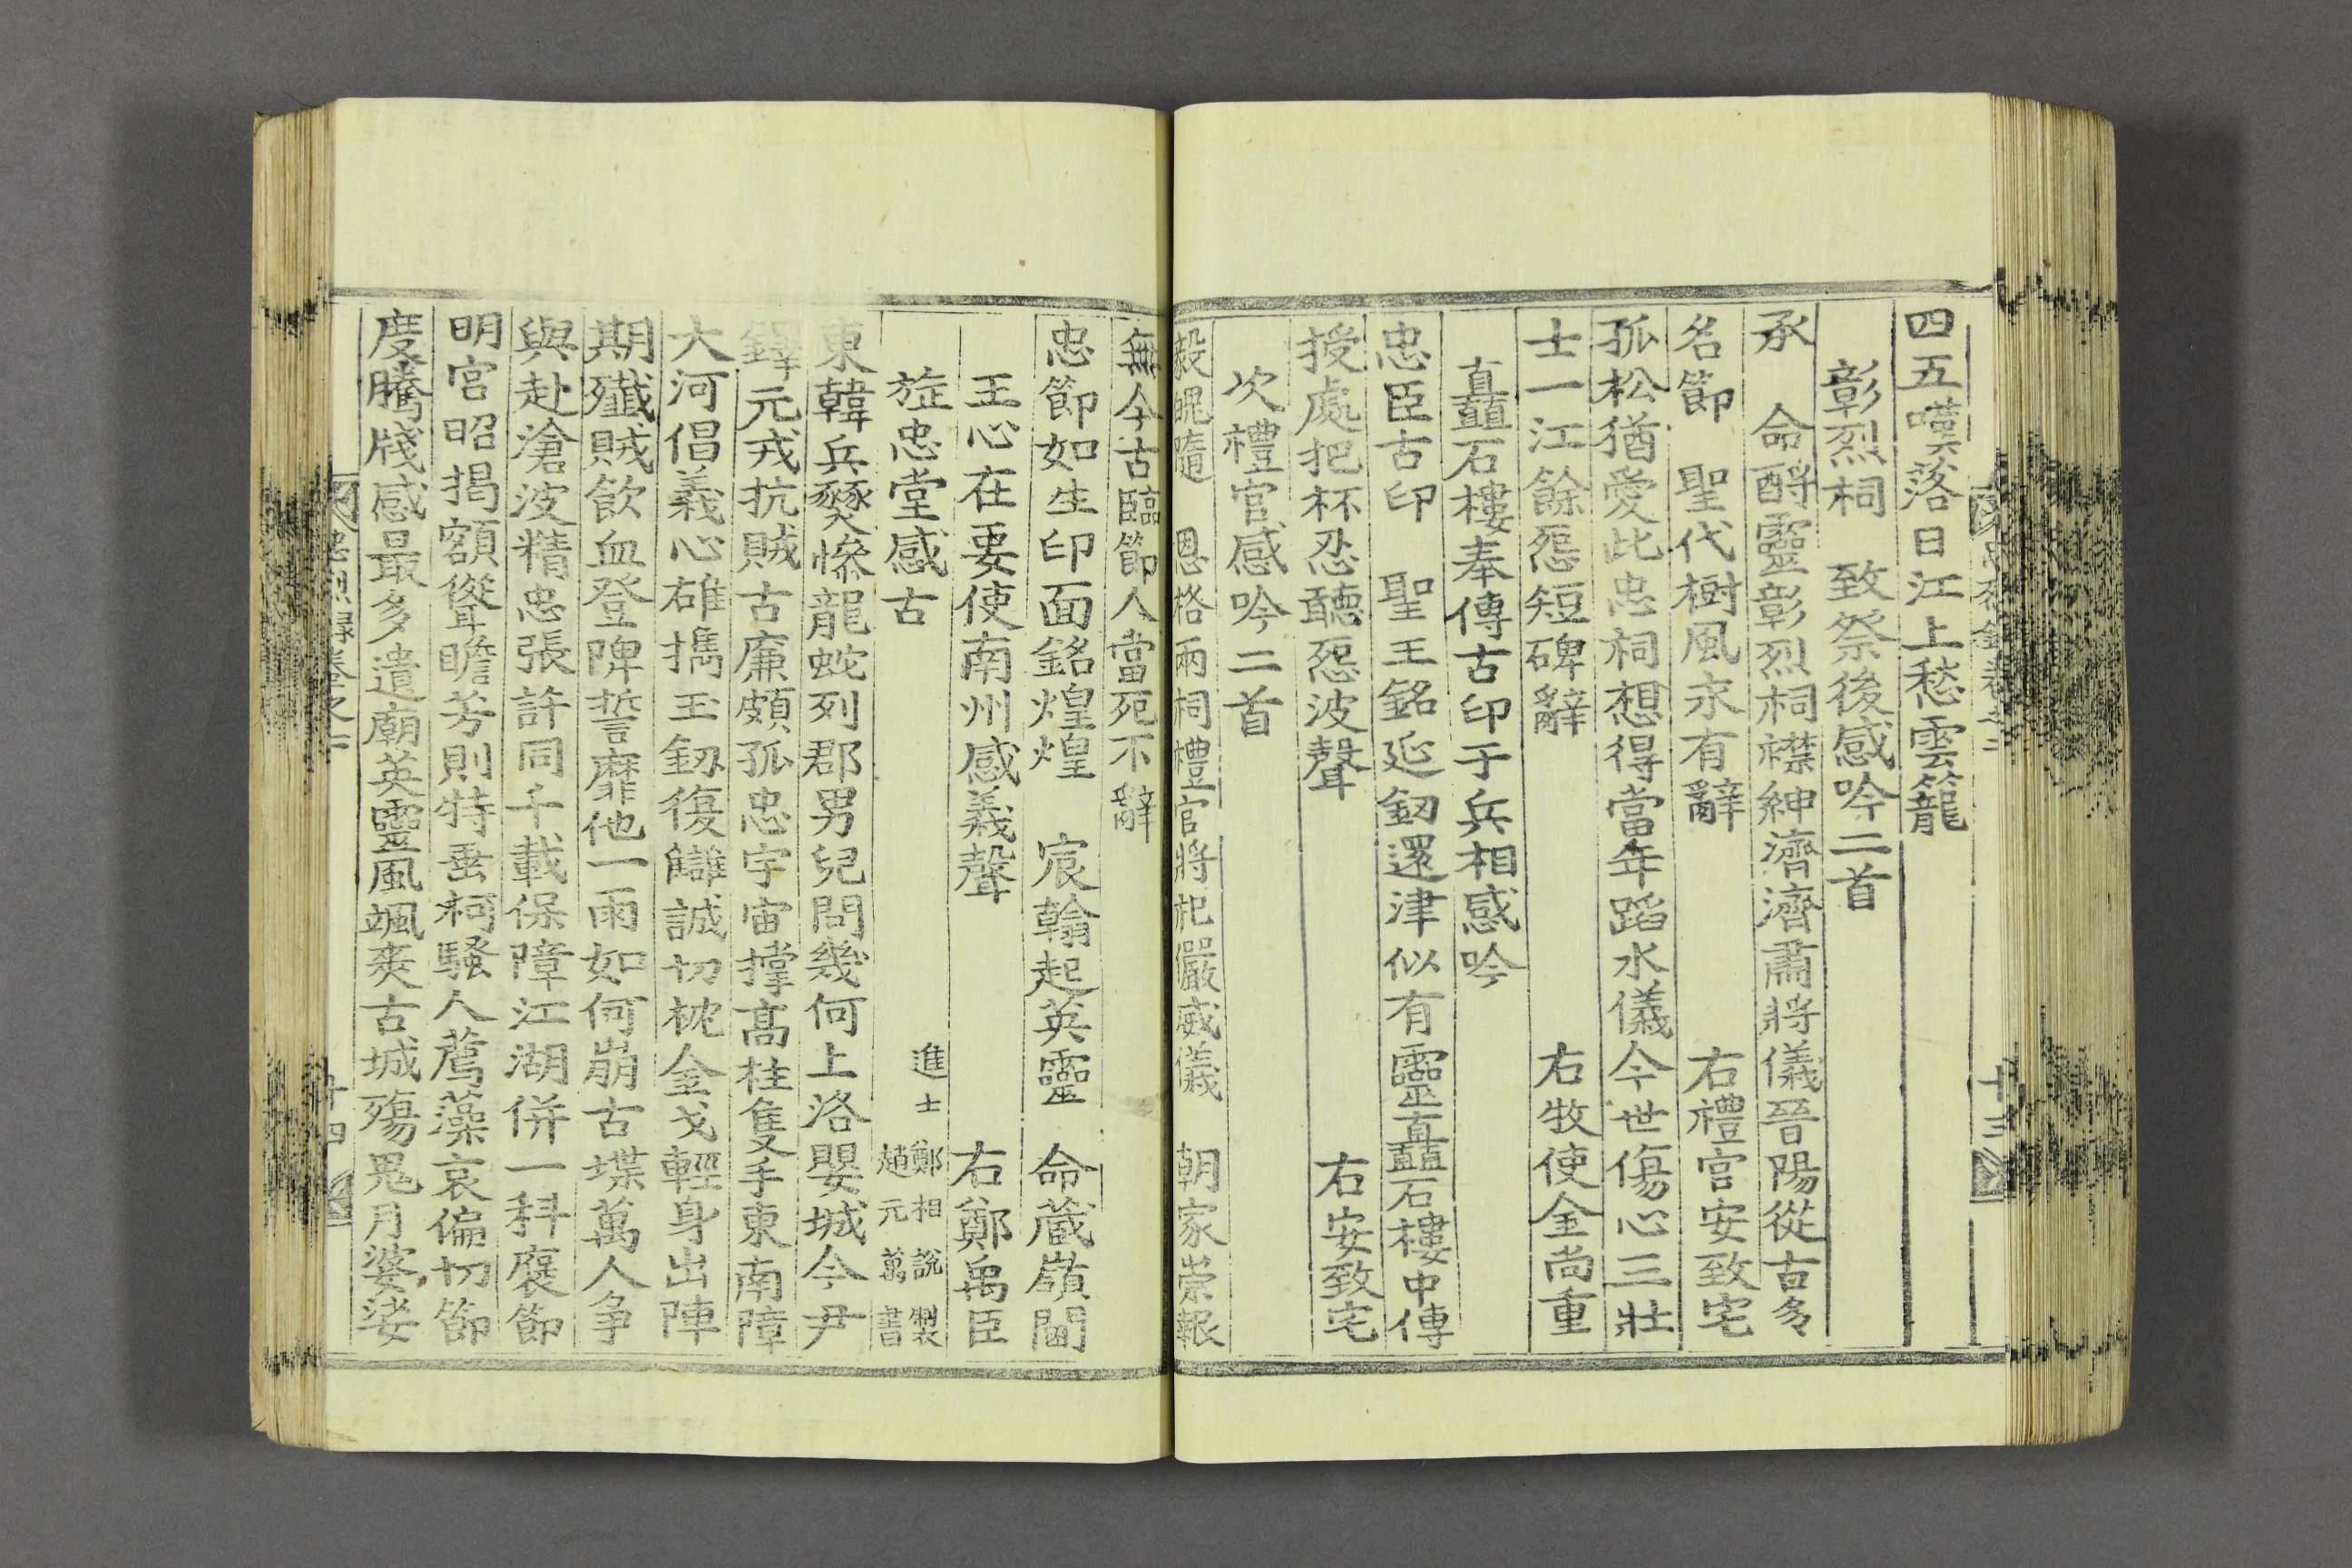 四五嘆落日江上愁雲籠
彰烈祠 致祭後感吟二首
承 命酹靈彰烈祠襟紳濟濟肅將儀晉陽從古多
名節 聖代樹風永有辭 右禮官安致宅
孤松猶愛此忠祠想得當年蹈水儀今世傷心三壯
士一江餘怨短碑辭 右牧使金尚重
矗石樓奉傳古印于兵相感吟
忠臣古印 聖王銘延釼還津似有靈矗石樓中傳
授處把杯忍聽怨波聲 右安致宅
次禮官感吟二首
毅魄隨 恩格兩祠禮官將祀儼威儀 朝家崇報
無今古臨節人當死不辭
忠節如生印面銘煌煌 宸翰起英靈 命藏嶺閫
王心在要使南州感義聲 右鄭禹臣
旌忠堂感古 進士 鄭相說製 趙元萬書
東韓兵燹慘龍蛇列郡男兒問幾何上洛嬰城今尹
鐸元戎抗賊古廉頗孤忠宇宙撐高柱隻手東南障
大河倡義心雄擕玉釼復讎誠切枕金戈輕身出陣
期殲賊飲血登陴誓靡他一雨如何崩古堞萬人爭
與赴滄波精忠張許同千載保障江湖併一科褒節
明宮昭揭額聳瞻芳則特垂柯騷人薦藻哀偏切節
度騰牋感最多遺廟英靈風颯爽古城殤鬼月婆娑
忠烈錄卷之二
十三
十四